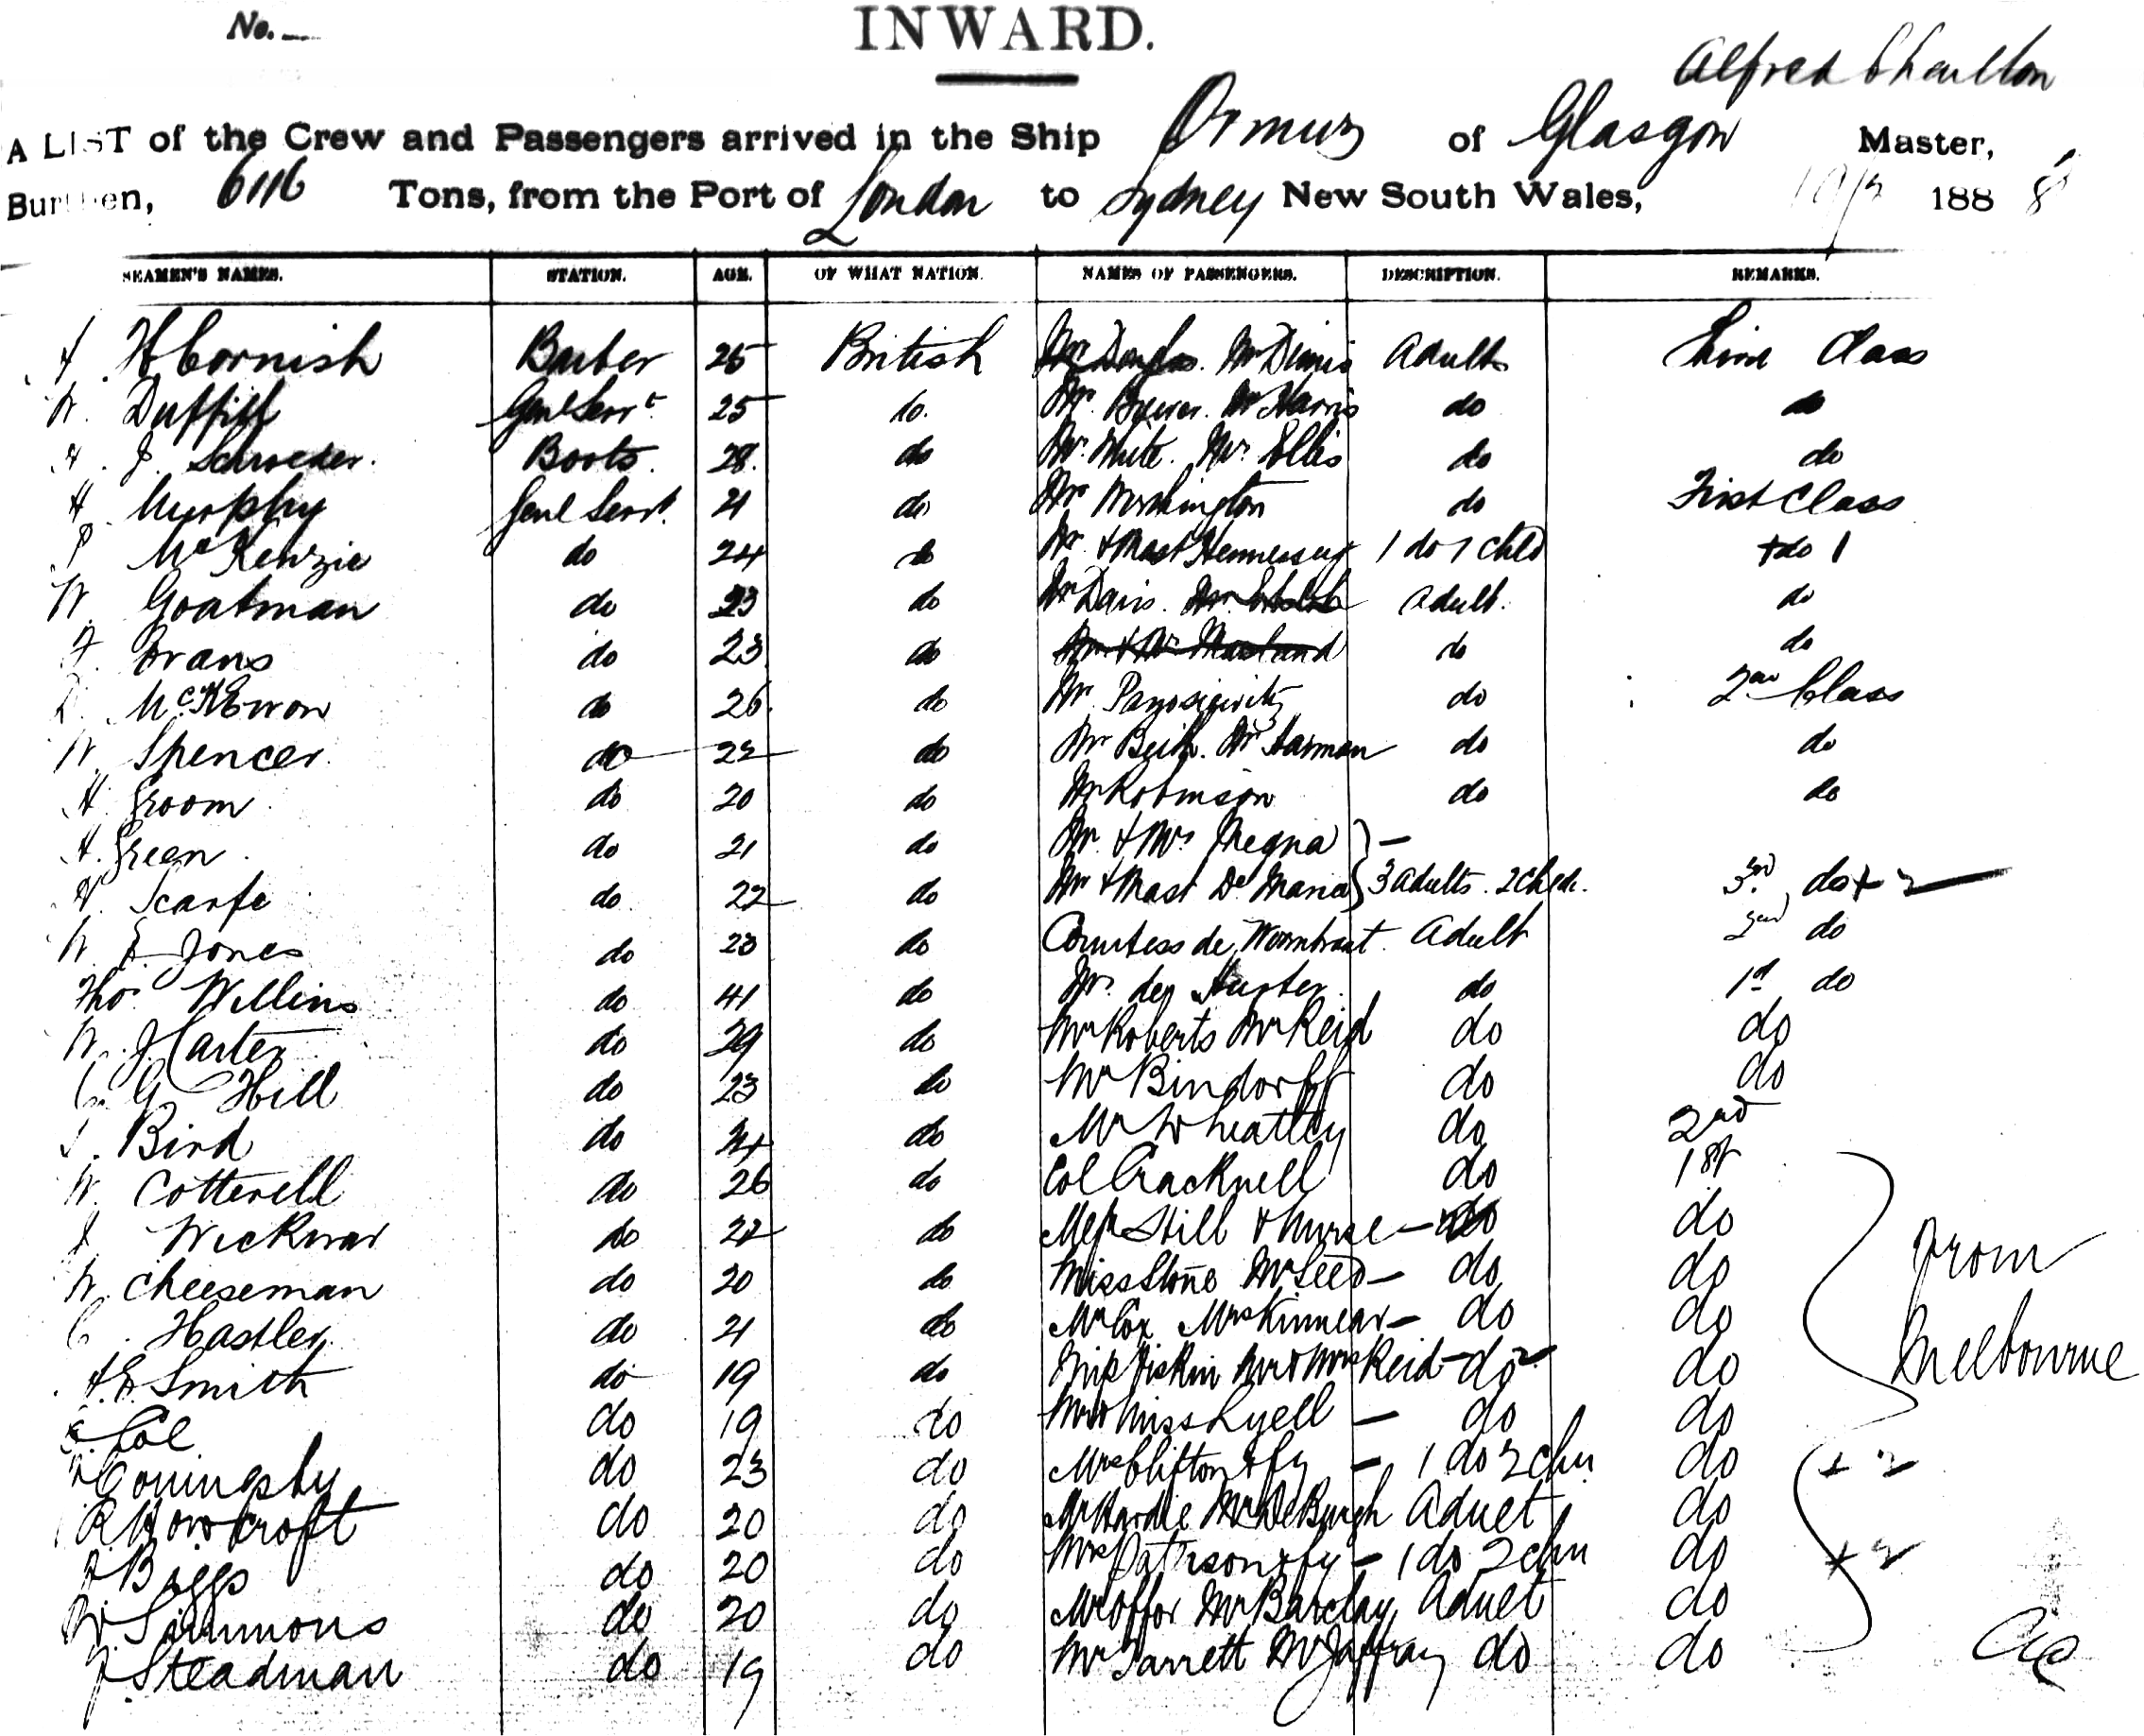 No.
INWARD.
Alfred Charlton
A LIST of the Crew and Passengers arrived in the Ship Ormuz of Glasgow Master,
Burthen, 6116 Tons, from the Port of London to Sydney New South Wales, 1888
SEAMEN'S NAMES. STATION. AGE. OF WHAT NATION. NAMES OF PASSENGERS. DESCRIPTION. REMARKS.
H Cornish Barber 25 British Mr Dennis Adults Class
W. Duffill Genl Servt 25 do. Mr Brewer. Mr Harris do do
J. Schroeder. Boots. 28. do Mr White. Mr Ellis do do
H Murphy Genl Servt. 21 do Mr Worthington do First Class
McKenzie do 24 do Mr & Mast Hennessey 1 do 1 chld +do 1
W. Goatman do 23 do Mr Davis. Adult. do
F. Evans do 23 do do do
McEwon do 26. do Mr do 2nd Class
W. Spencer. do 22 do Mr Beith. Mr Harman do do
H Groom do 20 do Mr Robinson do do
H. Green do 21 do Mr & Mrs Megna —
Scarfe do 22 do Mr & Mast De Maria 3 adults. 2 chldn. 3rd do + 2
W. E. Jones do 23 do Countess de Adult 2nd do
Thos Willins do 41 do Mr. do 1st do
W. J Carter do 29 do Mr Roberts Mr Reid do do
G. Hill do 23 do Mr Bindorff do do
Bird do 24 do Mr Wheatley do 2nd
W. Cotterell do 26 do Col Cracknell do 1st
J Wickwar do 22 do Still & Nurse — do do From
W. Cheeseman do 20 do Miss Stone Mr Seed — do do
C. Hastler do 21 do Mr Cox Mrs Kinnear — do do Melbourne
H. E Smith do 19 do Miss Piskin Mr & Mrs Reid — do 2 do
Cole do 19 do Miss Lyell — do do
Coningsby do 23 do Mrs Clifton & fy — 1 do 2 chn do + 2
R. Howcroft do 20 do Mr Hardie Mr DeBurgh Aduet do
J Biggs do 20 do Mrs Paterson & fy — 1 do 2 chn do + 2
W Simmons do 20 do Mr Offor Mr Barclay Aduet do
J Steadman do 19 do Mr Jarrett Mr Jaffray do do